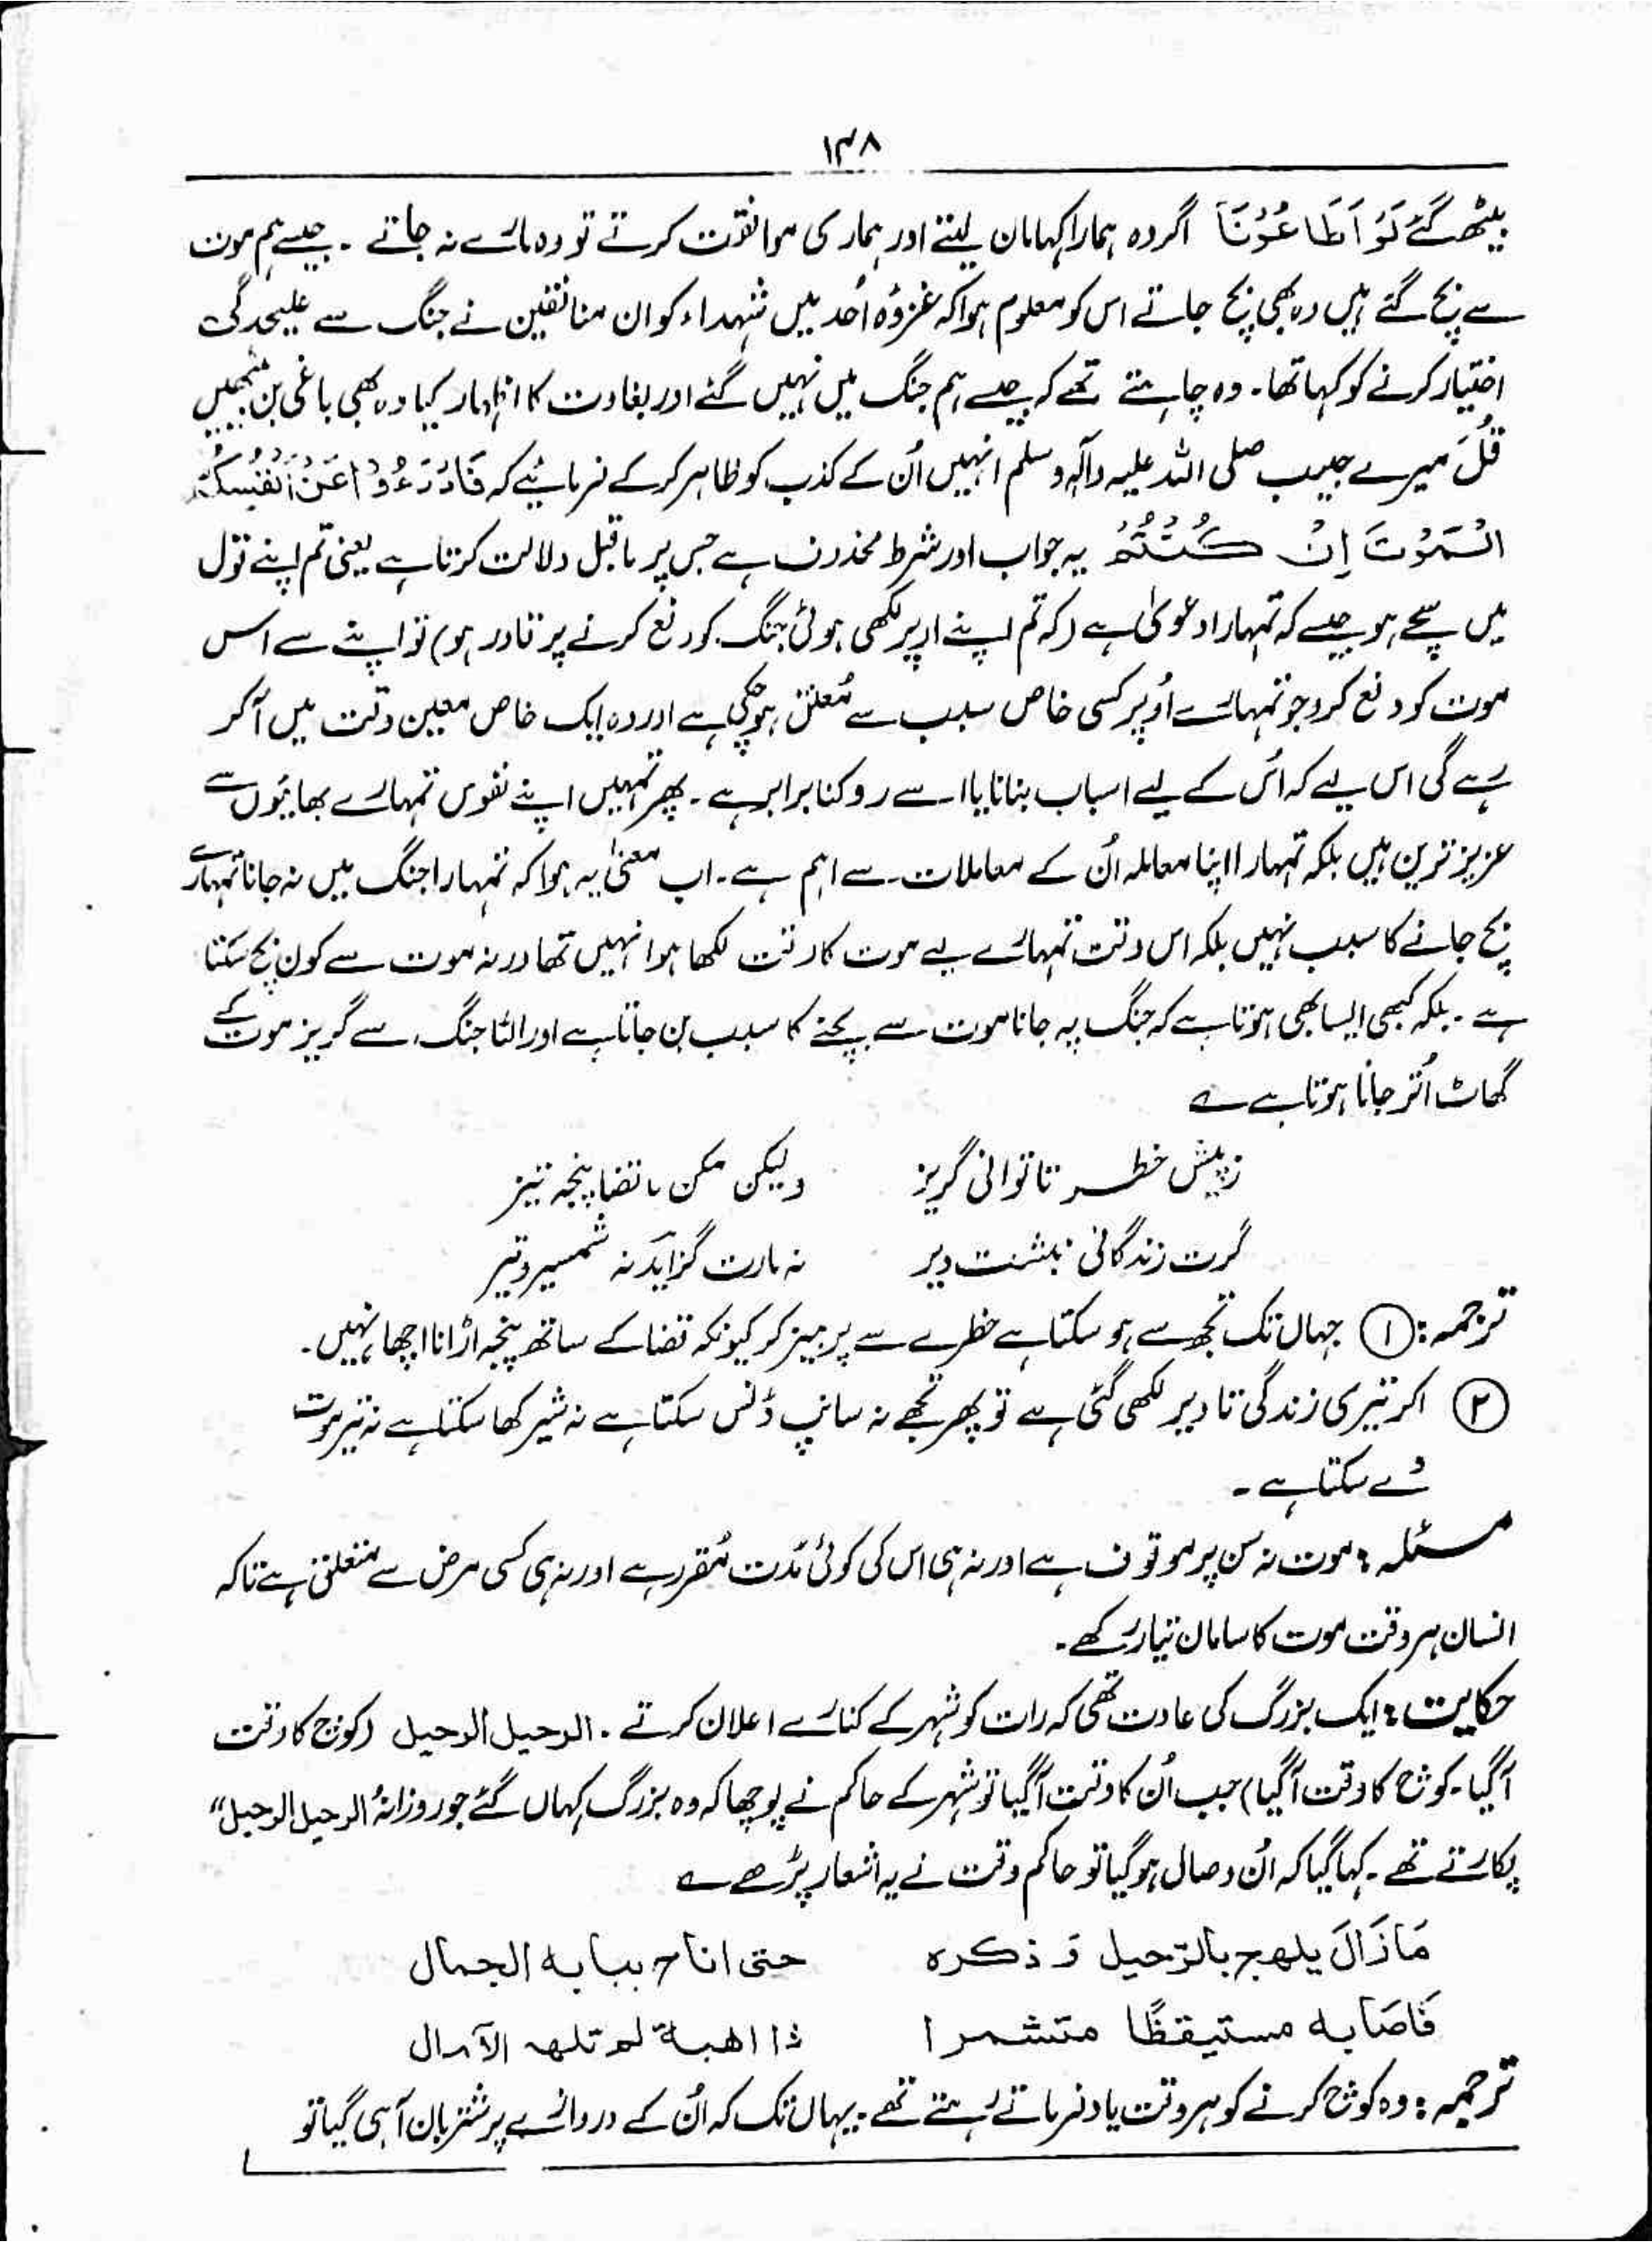 ۱۳۸
بیٹھ گئے لَوْ اَطَاعُوْنَا اگر وہ ہمارا کہا مان لیتے اور ہماری موافقت کرتے تو وہ مارے نہ جاتے ۔ جیسے ہم موت
سے بچ گئے ہیں وہ بھی بچ جاتے اس کو معلوم ہوا کہ غزوۂ اُحد میں شہداء کو ان منافقین نے جنگ سے علیحدگی
اختیار کرنے کو کہا تھا۔ وہ چاہتے تھے کہ جیسے ہم جنگ میں نہیں گئے اور بغاوت کا اظہار کیا وہ بھی باغی بن بیٹھیں
قُلْ میرے حبیب صلی اللہ علیہ وآلہ وسلم انہیں اُن کے کذب کو ظاہر کر کے فرمایئے کہ فَادْرَءُوْا عَنْ اَنْفُسِكُمُ
الْمَوْتَ اِنْ كُنْتُمْ یہ جواب اور شرط محذوف ہے جس پر ماقبل دلالت کرتا ہے یعنی تم اپنے قول
میں سچے ہو جیسے کہ تمہارا دعویٰ ہے (کہ تم اپنے اوپر لکھی ہوئی جنگ کو دفع کرنے پر قادر ہو) تو اپنے سے اس
موت کو دفع کرو جو تمہارے اُوپر کسی خاص سبب سے مُعلق ہو چکی ہے اور وہ ایک خاص معین وقت میں آ کر
رہے گی اس لیے کہ اُس کے لیے اسباب بنانا یا اسے روکنا برابر ہے ۔ پھر تمہیں اپنے نفوس تمہارے بھائیوں سے
عزیز ترین ہیں بلکہ تمہارا اپنا معاملہ اُن کے معاملات سے اہم ہے ۔ اب معنیٰ یہ ہوا کہ تمہارا جنگ میں نہ جانا تمہارے
بچ جانے کا سبب نہیں بلکہ اس وقت تمہارے لیے موت کا وقت لکھا ہوا نہیں تھا ورنہ موت سے کون بچ سکتا
ہے ۔ بلکہ کبھی ایسا بھی ہوتا ہے کہ جنگ پہ جانا موت سے بچنے کا سبب بن جاتا ہے اور الٹا جنگ سے گریز موت کے
گھاٹ اُتر جانا ہوتا ہے ؎
زپیش خطر تا توانی گریز ولیکن مکن با قضا پنجہ تیز
گرت زندگانی نبشت دیر نہ مارت گزاید نہ شمسیر و تیر
ترجمہ : ① جہاں تک تجھ سے ہو سکتا ہے خطرے سے پرہیز کر کیونکہ قضا کے ساتھ پنجہ اڑانا اچھا نہیں ۔
② اگر تیری زندگی تا دیر لکھی گئی ہے تو پھر تجھے نہ سانپ ڈس سکتا ہے نہ شیر کھا سکتا ہے نہ تیر موت
دے سکتا ہے ۔
مسئلہ : موت نہ سن پر موقوف ہے اور نہ ہی اس کی کوئی مدت مُقرر ہے اور نہ ہی کسی مرض سے متعلق ہے تاکہ
انسان ہر وقت موت کا سامان تیار رکھے ۔
حکایت : ایک بزرگ کی عادت تھی کہ رات کو شہر کے کنارے اعلان کرتے ۔ الرحیل الرحیل (کوچ کا وقت
آ گیا ۔ کوچ کا وقت آ گیا) جب اُن کا وقت آ گیا تو شہر کے حاکم نے پوچھا کہ وہ بزرگ کہاں گئے جو روزانہ الرحیل الرحیل“
پکارتے تھے ۔ کہا گیا کہ اُن وصال ہو گیا تو حاکم وقت نے یہ اشعار پڑھے ؎
مَا زَالَ یلهج بالرّحیل وَ ذکره حتی اناخ ببابه الجمال
فَاصَابه مستیقظًا متشمرا ذا اهبة لم تلهه الآمال
ترجمہ : وہ کوچ کرنے کو ہر وقت یاد فرماتے رہتے تھے ۔ یہاں تک کہ اُن کے دروازے پر شتربان آ ہی گیا تو